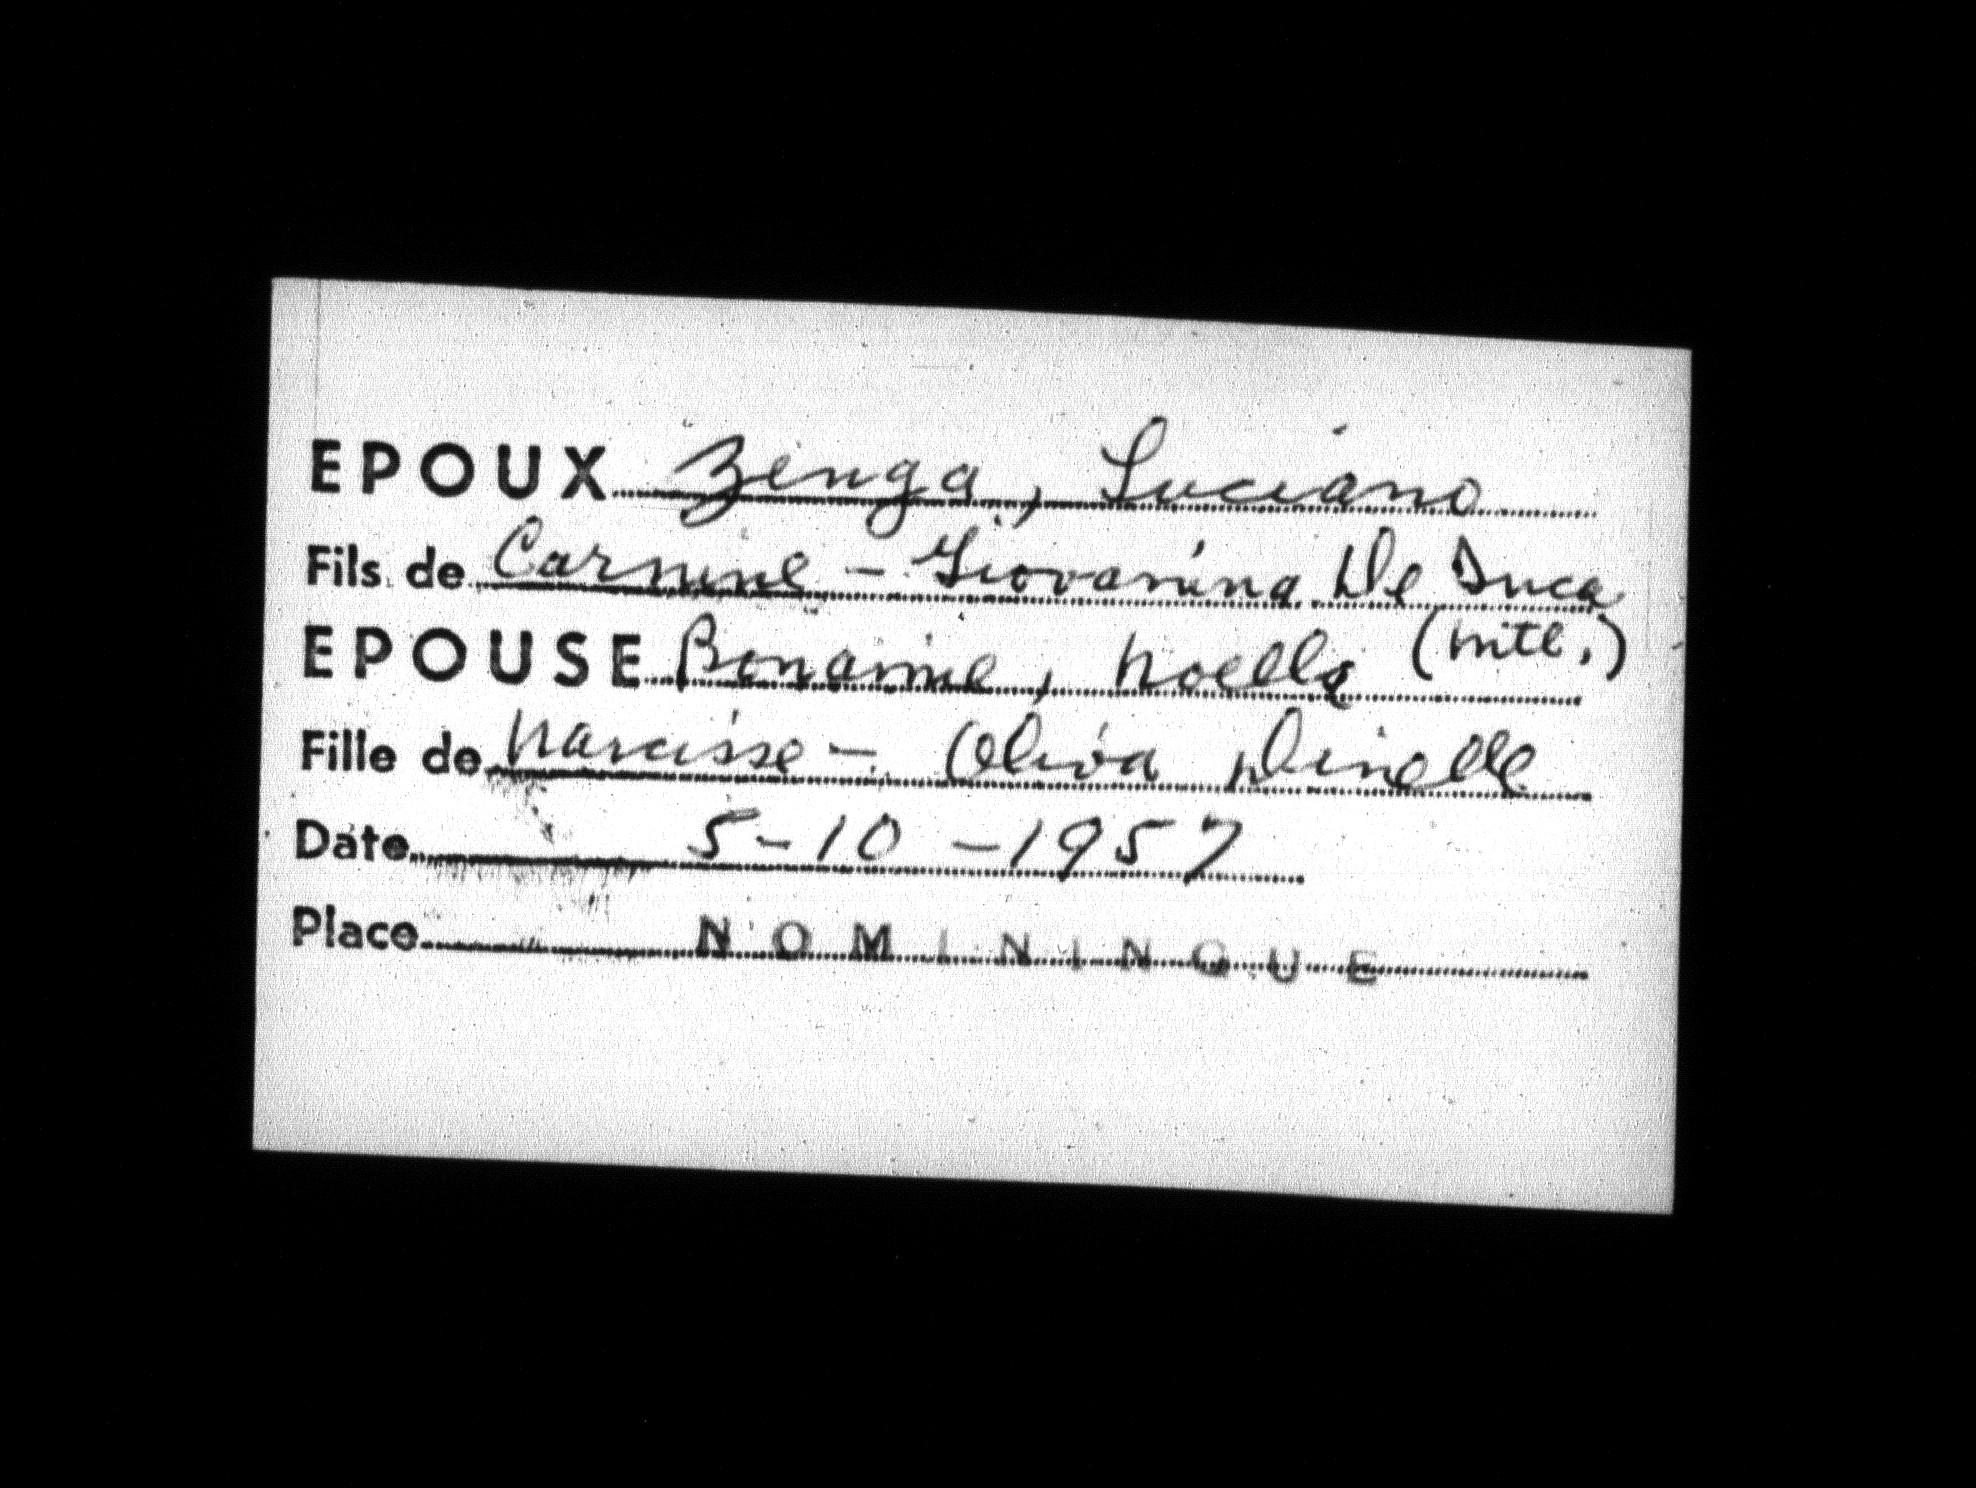 EPOUX Zenga, Luciano
Fils de Carmine - Giovanina De Duca
(Mtl.)
EPOUSE Bonamie, Noella
Fille de Narcisse - Oliva Dinelle
Date 5-10-1957
Place NOMININGUE